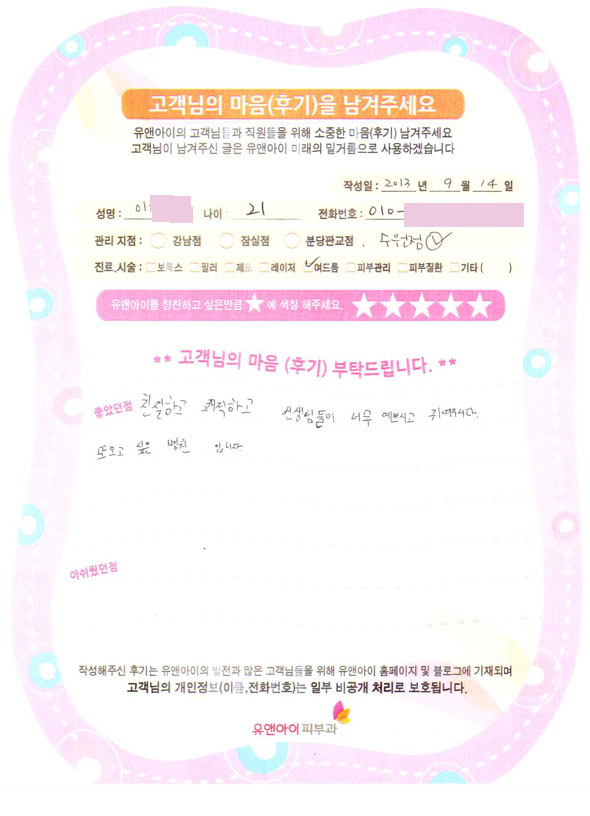 고객님의 마음(후기)을 남겨주세요
유앤아이의 고객님들과 직원들을 위해 소중한 마음(후기) 남겨주세요
고객님이 남겨주신 글은 유앤아이 미래의 밑거름으로 사용하겠습니다
작성일 : 2013 년 9 월 14 일
성명 : 나이 : 21 전화번호 : 010-
관리 지점 : 강남점 잠실점 분당판교점 , 수원점
진료,시술 : 보톡스 필러 제모 레이저 여드름 피부관리 피부질환 기타 ( )
유앤아이를 칭찬하고 싶은만큼 ★에 색칠 해주세요. ★★★★★
** 고객님의 마음 (후기) 부탁드립니다. **
좋았던점 친절하고 쾌적하고 선생님들이 너무 예쁘시고 귀여우시다.
또오고 싶은 병원 입니다.
아쉬웠던점
작성해주신 후기는 유앤아이의 발전과 많은 고객님들을 위해 유앤아이 홈페이지 및 블로그에 기재되며
고객님의 개인정보(이름,전화번호)는 일부 비공개 처리로 보호됩니다.
유앤아이 피부과